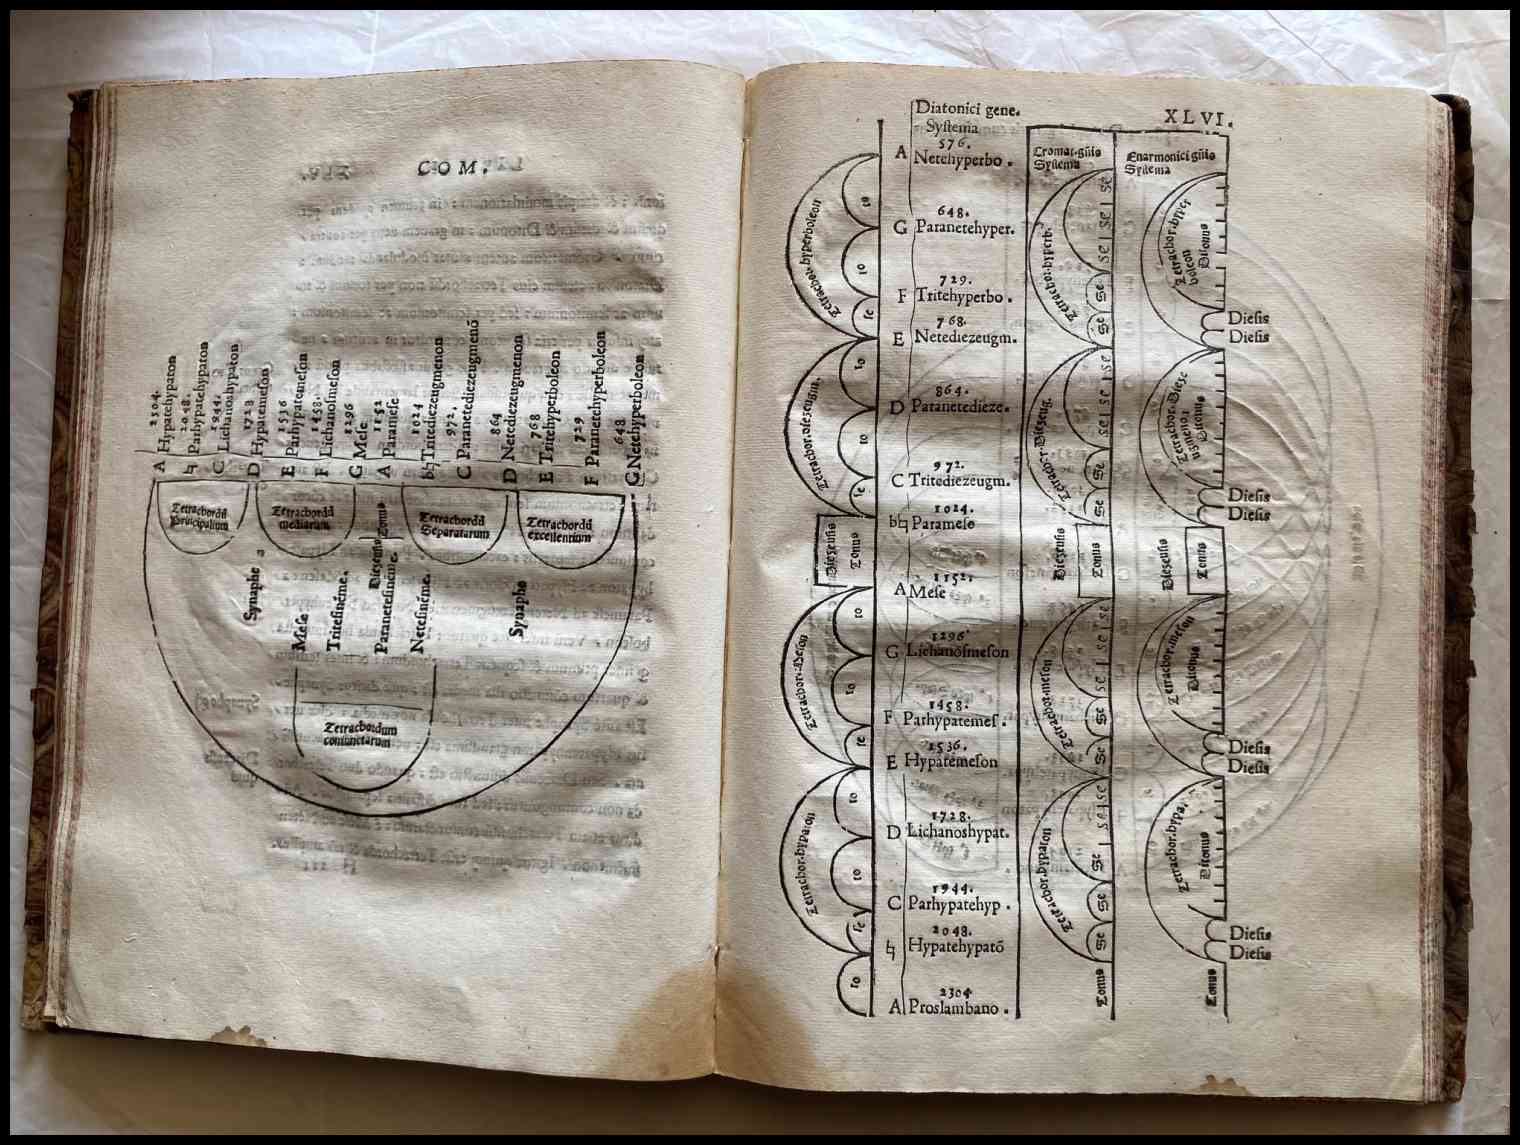 COM.
2304.
A Hypatehypaton
2048.
♮ Parhypatehypaton
1944.
C Lichanoshypaton
1728
D Hypatemeſon
1536
E Parhypatemeſon
1458.
F Lichanoſmeſon
1296
G Meſe
1152
A Parameſe
1024
b♮ Tritediezeugmenon
972.
C Paranetediezeugmenō
864
D Netediezeugmenon
768
E Tritehyperboleon
729
F Paranetehyperboleon
648
G Netehyperboleon
Tetrachordū
principalium
Tetrachordū
mediarum
Tonus
Diezeuſis
Tetrachordū
Separatarum
Tetrachordū
excellentium
Synaphe
Meſe
Triteſinēme.
Paraneteſinēme.
Neteſinēme.
Synaphe
Tetrachordum
coniunctarum
XLVI.
Diatonici gene.
Syſtema
576.
A Netehyperbo.
648.
G Paranetehyper.
729.
F Tritehyperbo.
768.
E Netediezeugm.
864.
D Paranetedieze.
972.
C Tritediezeugm.
1024.
b♮ Parameſe
1152.
A Meſe
1296
G Lichanoſmeſon
1458.
F Parhypatemeſ.
1536.
E Hypatemeſon
1728.
D Lichanoshypat.
1944.
C Parhypatehyp.
2048.
♮ Hypatehypatō
2304
A Proslambano.
Tetrachor.hyperboleon
to
to
ſe
Tetrachor.diezeugm.
to
to
ſe
Diezeuſis
Tonus
Tetrachor.Meſon
to
to
ſe
Tetrachor.hypaton
to
to
ſe
to
Cromat.gn̄is
Syſtema
Tetrachor.hyperb.
se se se
se
se
Tetrachor.Diezeug.
se se se
se
se
Diezeuſis
Tonus
Tetrachor.meſon
se se se
se
se
Tetrachor.hypaton
se se se
se
se
Tonus
Enarmonici gn̄is
Syſtema
Tetrachor.hyper
boleon
Ditonus
Dieſis
Dieſis
Tetrachor.Dieze
ugmenon
Ditonus
Dieſis
Dieſis
Diezeuſis
Tonus
Tetrachor.meſon
Ditonus
Dieſis
Dieſis
Tetrachor.hypa.
Ditonus
Dieſis
Dieſis
Tonus